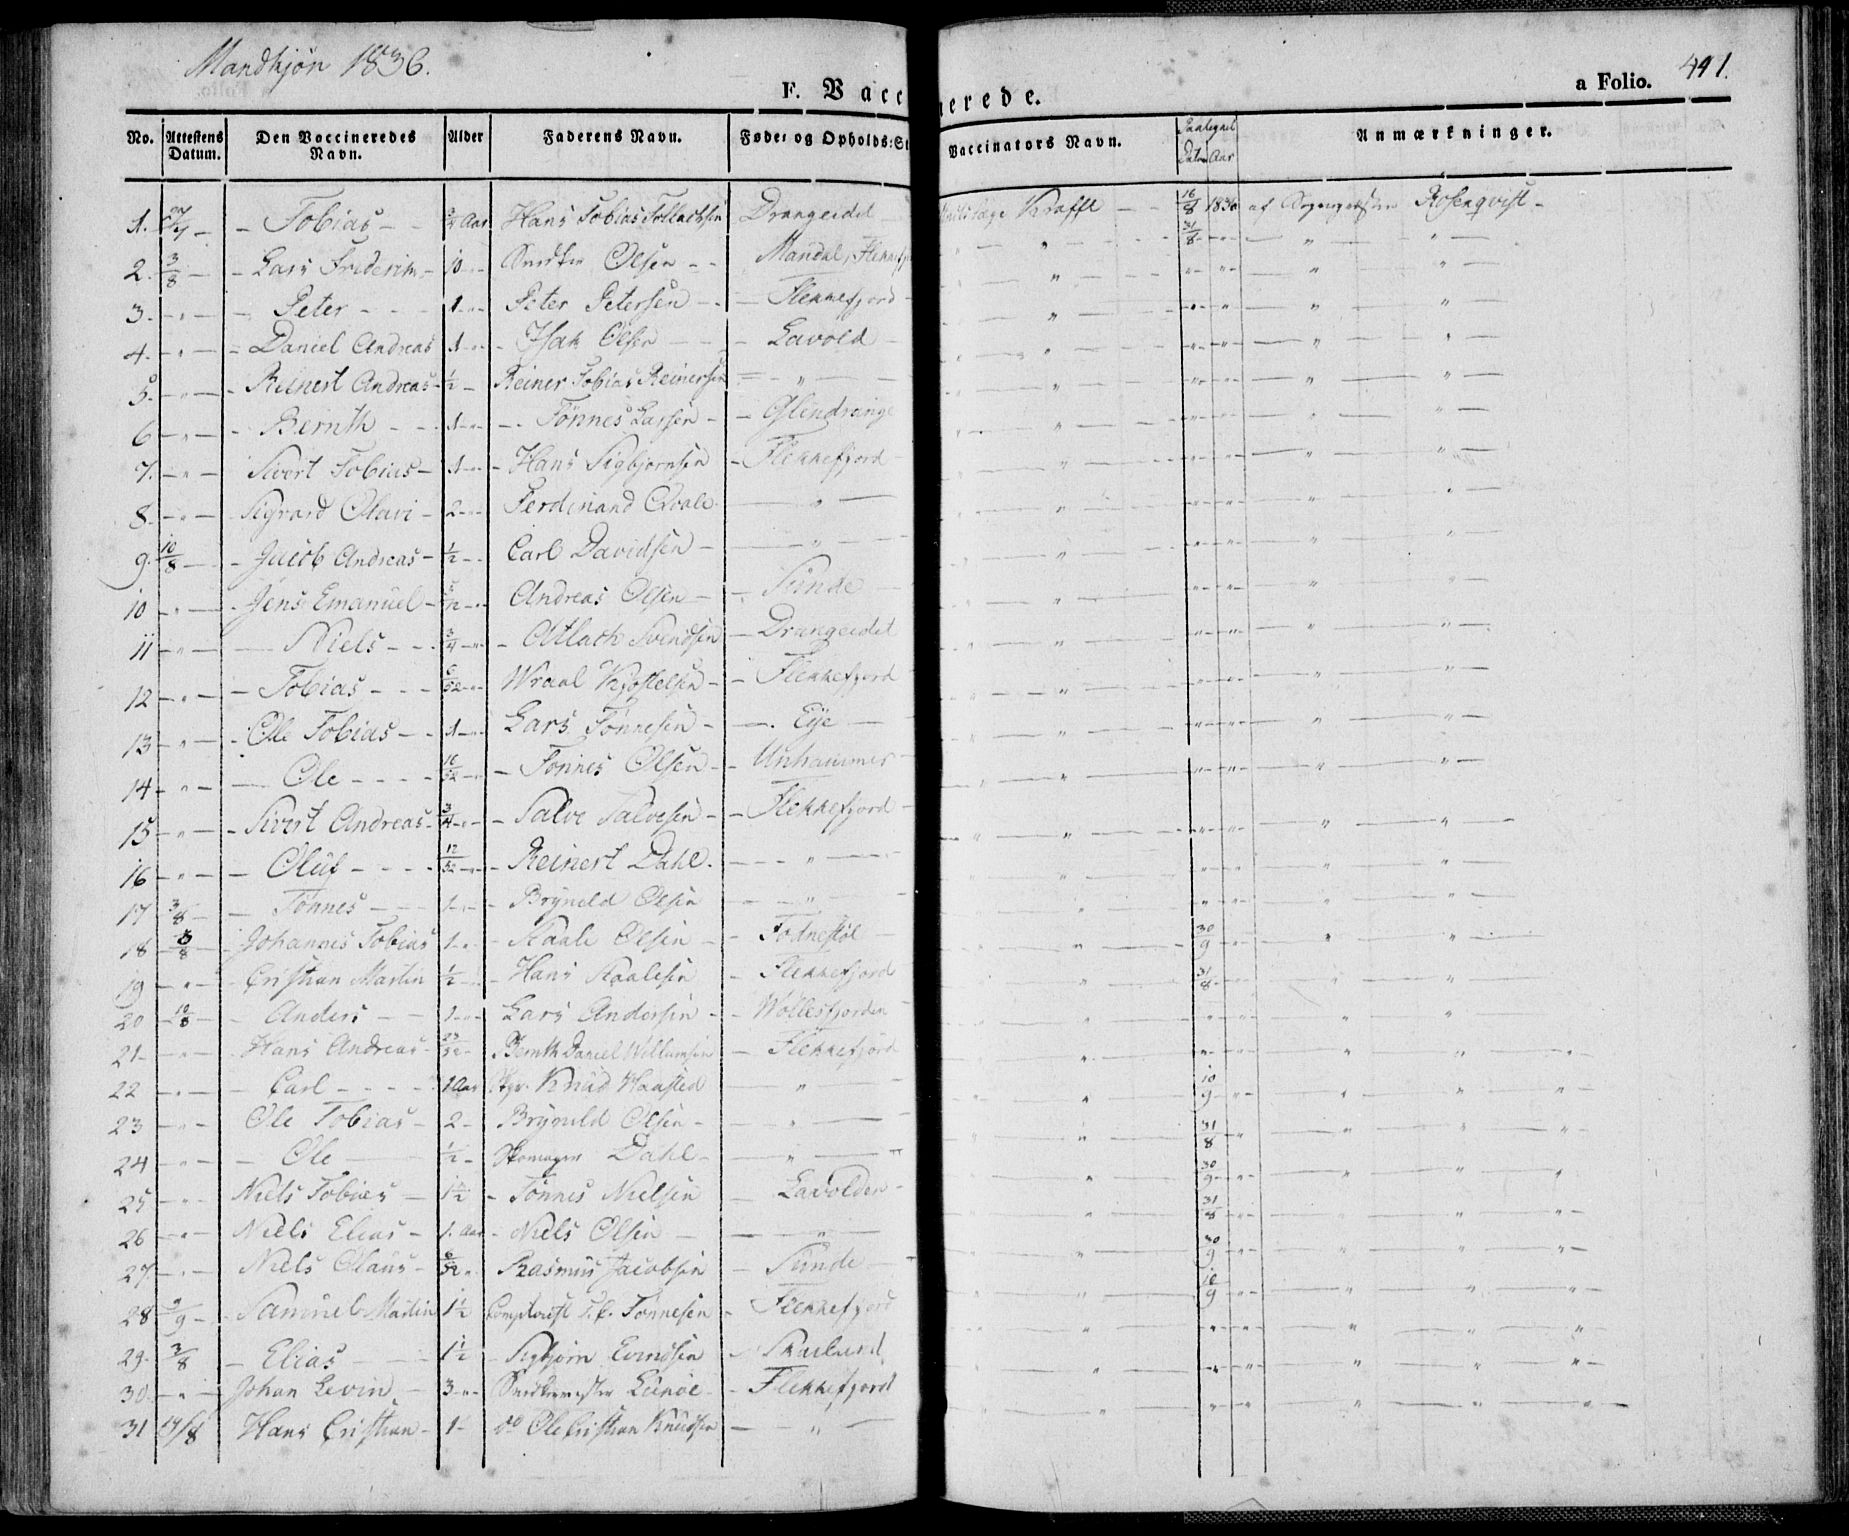 Mandkjøn 1836.
F. Vaccinerede.
a Folio. 441.
No. | Attestens Datum. | Den Vaccineredes Navn. | Alder | Faderens Navn. | Føde- og Opholds-St | Vaccinators Navn. | Datum Aar | Anmærkninger.
1. | Tobias | Aar | Hans Tobias | Drangeidet | Krafft | 16/8 1836 | af Rosenqvist
2. 3/8 | Lars | 10 | Olsen | Mandal, | 31/8
3. " | Peter | 1 | Peter Petersen | Flekkefjord | " | " | "
4. " | Daniel Andreas | 1 | Isak Olsen | Lavold | " | " | "
5. " | Reinert Andreas | 1/2 | Reiner Tobias Reinersen | " | " | " | "
6 " | Bernth | 1 | Tønnes Larsen | Glendrange | " | " | "
7. " | Sivert Tobias | 1 | Hans Sigbjørnsen | Flekkefjord | " | " | "
8. " | Sigvard Olavi | 2 | Ferdinand Qvale | " | " | " | "
9. 10/8 | Jacob Andreas | 1/2 | Carl Davidsen | " | " | " | "
10 " | Jens Emanuel | 5/12 | Andreas Olsen | Sunde | " | " | "
11 " | Niels | 3/4 | Atlach Svendsen | Drangeidet | " | " | "
12 " | Tobias | 6/52 | Wraal Kjøstelsen | Flekkefjord | " | " | "
13 " | Ole Tobias | 1 | Lars Tønnesen | Eye | " | " | "
14 " | Ole | 16/52 | Tønnes Olsen | Unhammer | " | " | "
15 " | Sivert Andreas | 3/4 | Salve Salvesen | Flekkefjord | " | " | "
16 " | Oluf | 12/52 | Reinert Dahl. | " | " | " | "
17 3/8 | Tønnes | 1 | Bryneld Olsen | " | " | " | "
18 3/8 | Johannes Tobias | 1 | Aaale Olsen | Fodnestøl | " | 30/9 | "
19 " | Cristian Martin | 1/2 | Hans Aaalesen | Flekkefjord | " | 31/8 | "
20 10/8 | Anders | 1 | Lars Andersen | Wollesfjorden | " | " | "
21 " | Hans Andreas | 23/52 | Bernth Daniel Willumsen | Flekkefjord | " | " | "
22 " | Carl | 1 Aar | Knud Haasted | " | " | 10/9 | "
23 " | Ole Tobias | 2 | Bryneld Olsen | " | " | 31/8 | "
24 " | Ole | 1/2 | Skomager Dahl | " | " | 30/9 | "
25 " | Niels Tobias | 1 1/2 | Tønnes Nielsen | Lavolden | " | 31/8 | "
26 " | Niels Elias | 1. Aar | Niels Olsen | " | " | 30/9 | "
27. " | Niels Olaus | 6/52 | Rasmus Jacobsen | Sunde | " | 10/9 | "
28 9/9 | Samuel Martin | 1 1/2 | Tønnesen | Flekkefjord | " | " | "
29. 3/8 | Elias | 1 1/2 | Sigbjørn Evindsen | " | " | "
30. " | Johan Levin | 3 | Lunøe | Flekkefjord | " | " | "
31 14/8 | Hans Cristian | 1 | do Ole Cristian Knudsen | "